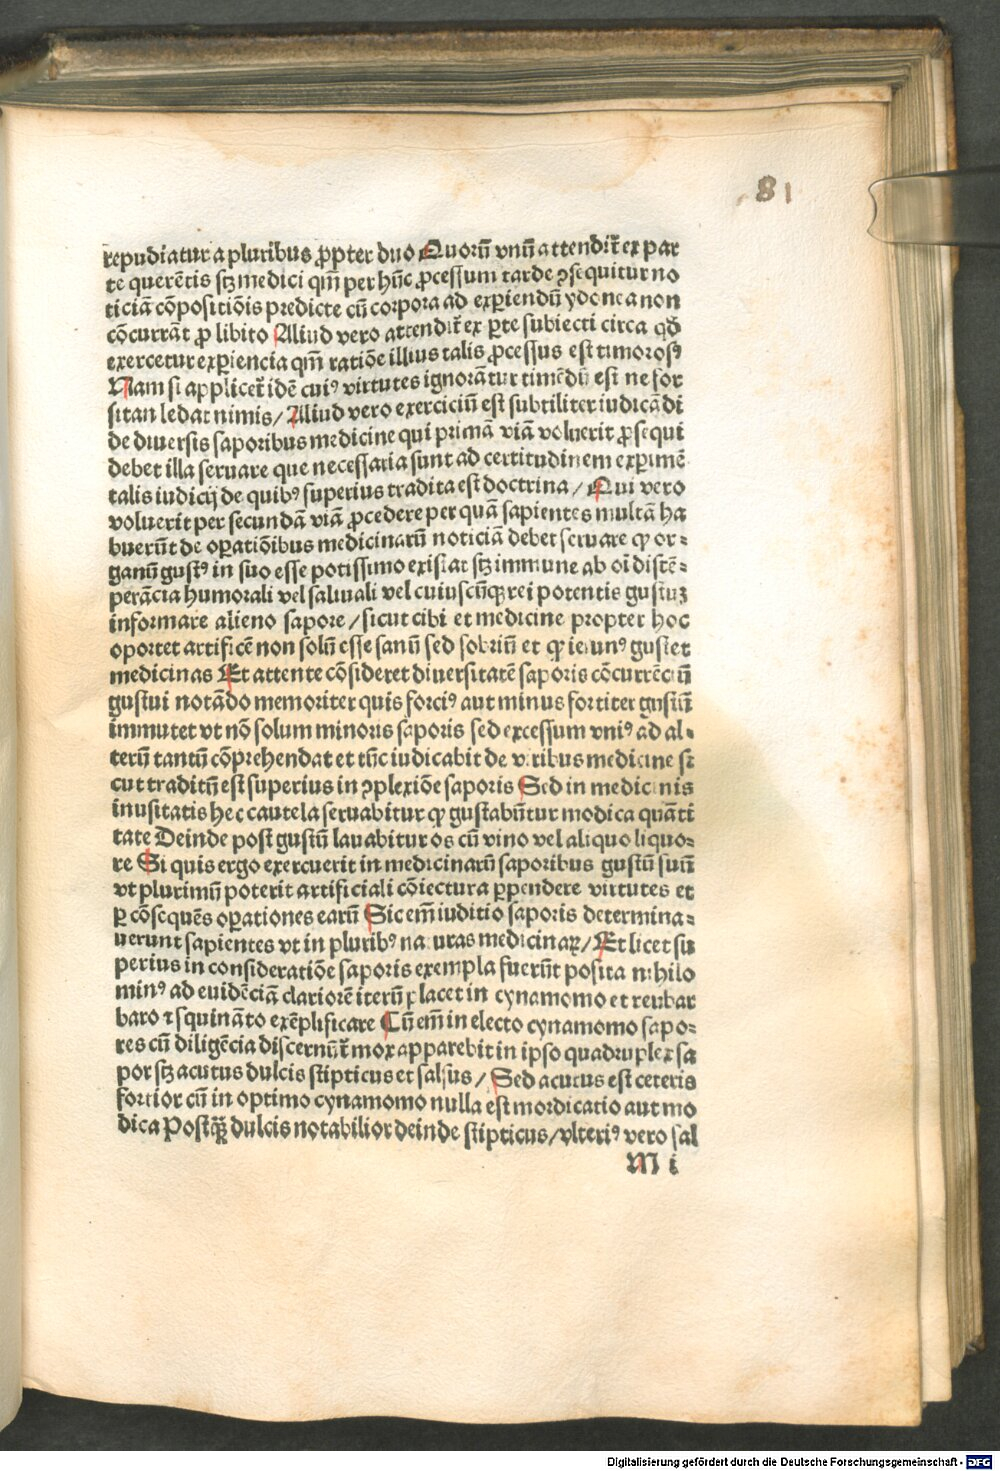 81
repudiatur a pluribus ꝓpter duo Quorū vnū attendit̄ ex par
te querētis stz medici qm̄ per hūc ꝓcessum tarde ꝯsequitur no
ticiā cōpositiōis predicte cū corpora ad exꝑiendū ydonea non
cōcurrāt ꝓ libito Aliud vero attendit̄ ex ꝑte subiecti circa qd̄
exercetur exꝑiencia qm̄ ratiōe illius talis ꝓcessus est timorosꝰ
Nam si applicet̄ idē cuiꝰ virtutes ignorātur timēdū est ne for
sitan ledat nimis/ Aliud vero exerciciū est subtiliter iudicādi
de diuersis saporibus medicine qui primā viā voluerit ꝓsequi
debet illa seruare que necessaria sunt ad certitudinem exꝑimē
talis iudicij de quibꝰ superius tradita est doctrina/ Qui vero
voluerit per secundā viā ꝓcedere per quā sapientes multā ha
buerūt de oꝑatiōibus medicinarū noticiā debet seruare ꝙ or⸗
ganū gustꝰ in suo esse potissimo existat stz immune ab oī distē⸗
perācia humorali vel saliuali vel cuiuscūqꝫ rei potentis gustuꝫ
informare alieno sapore/ sicut cibi et medicine propter hoc
oportet artificē non solū esse sanū sed sobriū et ꝙ ieiunꝰ gustet
medicinas Et attente cōsideret diuersitatē saporis cōcurrēciū
gustui notādo memoriter quis forciꝰ aut minus fortiter gustū
immutet vt nō solum minoris saporis sed excessum vniꝰ ad al⸗
terū tantū cōprehendat et tūc iudicabit de viribus medicine si
cut traditū est superius in ꝯplexiōe saporis Sed in medicinis
inusitatis hec cautela seruabitur ꝙ gustabūtur modica quāti
tate Deinde post gustū lauabitur os cū vino vel aliquo liquo⸗
re Si quis ergo exercuerit in medicinarū saporibus gustū suū
vt plurimū poterit artificiali cōiectura ꝑpendere virtutes et
ꝑ cōsequēs oꝑationes earū Sic em̄ iuditio saporis determina⸗
uerunt sapientes vt in pluribꝰ naturas medicinaꝝ/ Et licet su
perius in consideratiōe saporis exempla fuerūt posita nihilo
minꝰ ad euidēciā clariorē iterū placet in cynamomo et reubar
baro ⁊ squināto exēplificare Cū em̄ in electo cynamomo sapo⸗
res cū diligēcia discernūt̄ mox apparebit in ipso quadruplex sa
por stz acutus dulcis stipticus et salsus/ Sed acutus est ceteris
fortior cū in optimo cynamomo nulla est mordicatio aut mo
dica Postqꝫ̄ dulcis notabilior deinde stipticus/ vlteriꝰ vero sal
M i
Digitalisierung gefördert durch die Deutsche Forschungsgemeinschaft - DFG